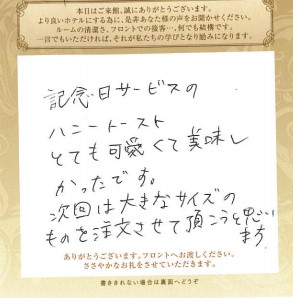 本日はご来館、誠にありがとうございます。
より良いホテルにする為に、是非あなた様の声をお聞かせください。
ルームの清潔さ、フロントでの接客…、何でも結構です。
一言でもいただければ、それが私たちの学びとなり励みになります。
記念日サービスの
ハニートースト
とても可愛くて美味し
かったです。
次回は大きなサイズの
ものを注文させて頂こうと思い
ます。
ありがとうございます。フロントへお渡しください。
ささやかなお礼をさせていただきます。
書ききれない場合は裏面へどうぞ